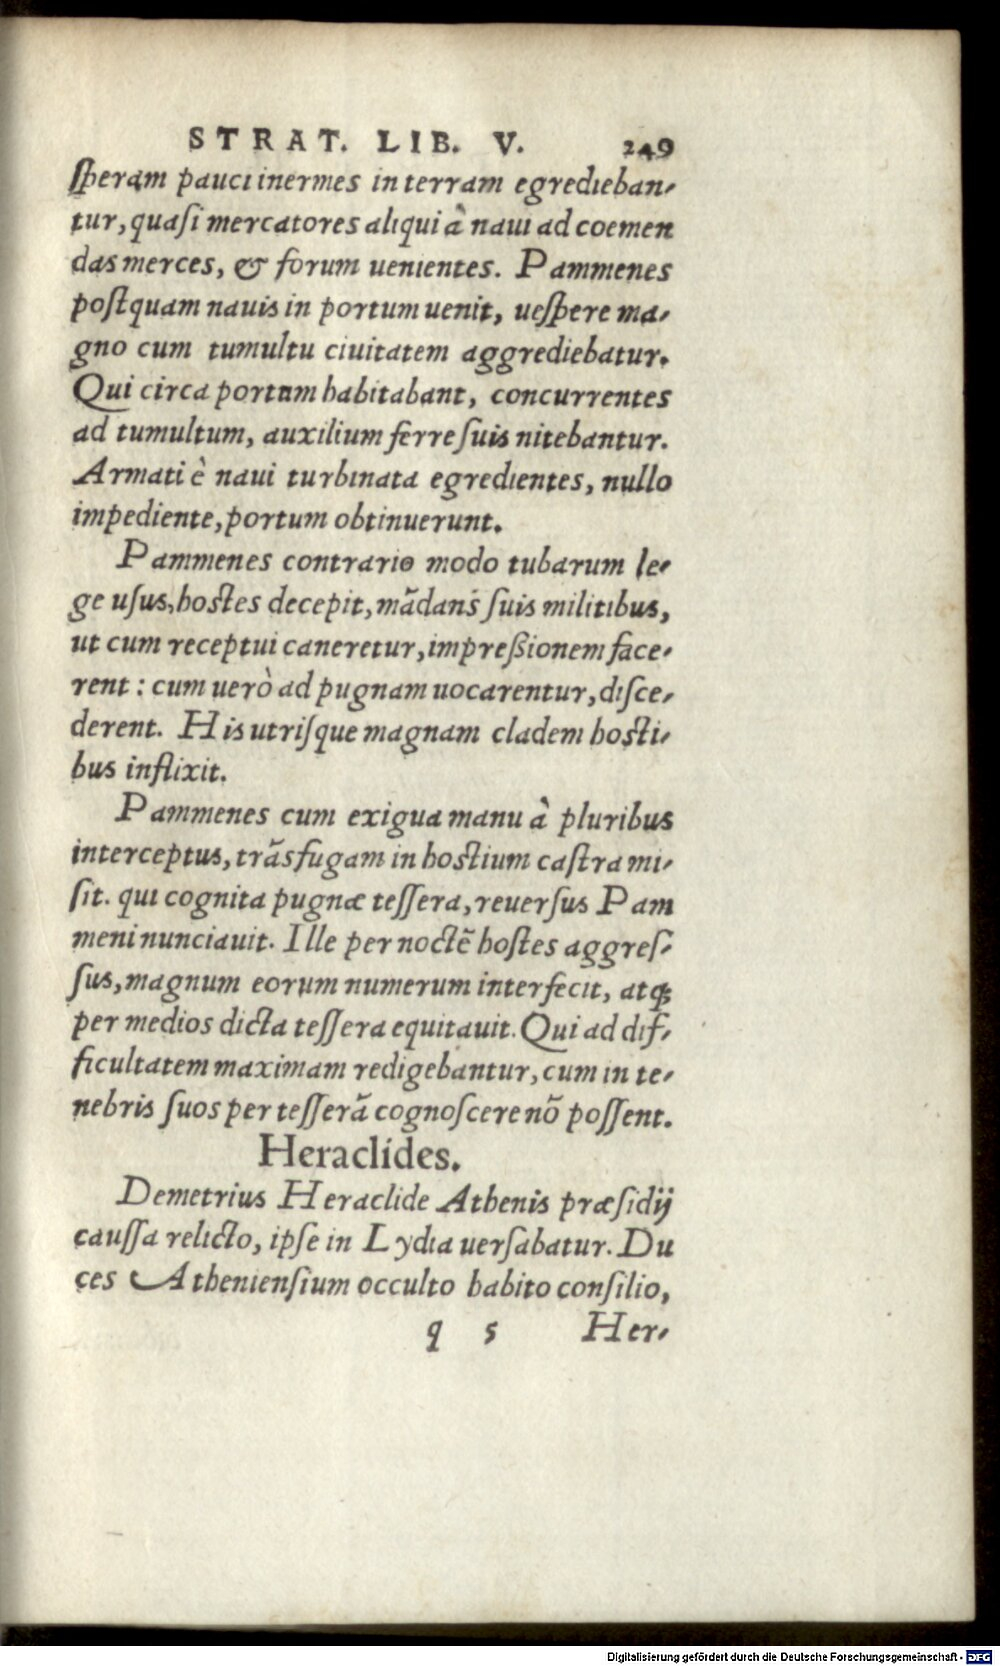 STRAT. LIB. V. 249
ſperam pauci inermes in terram egredieban-
tur, quaſi mercatores aliqui à naui ad coemen
das merces, & forum uenientes. Pammenes
poſtquam nauis in portum uenit, ueſpere ma-
gno cum tumultu ciuitatem aggrediebatur.
Qui circa portum habitabant, concurrentes
ad tumultum, auxilium ferre ſuis nitebantur.
Armati è naui turbinata egredientes, nullo
impediente, portum obtinuerunt.
Pammenes contrario modo tubarum le-
ge uſus, hoſtes decepit, mãdans ſuis militibus,
ut cum receptui caneretur, impreßionem face-
rent: cum uerò ad pugnam uocarentur, diſce-
derent. His utriſque magnam cladem hoſti-
bus inflixit.
Pammenes cum exigua manu à pluribus
interceptus, trãsfugam in hoſtium caſtra mi-
ſit. qui cognita pugnæ teſſera, reuerſus Pam
meni nunciauit. Ille per noctẽ hoſtes aggreſ-
ſus, magnum eorum numerum interfecit, atq́;
per medios dicta teſſera equitauit. Qui ad dif-
ficultatem maximam redigebantur, cum in te-
nebris ſuos per teſſerã cognoſcere nõ poſſent.
Heraclides.
Demetrius Heraclide Athenis præſidij
cauſſa relicto, ipſe in Lydia uerſabatur. Du
ces Athenienſium occulto habito conſilio,
q 5 Her-
Digitalisierung gefördert durch die Deutsche Forschungsgemeinschaft - DFG